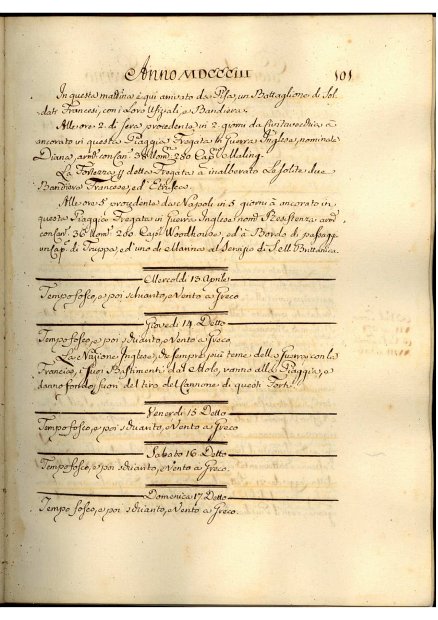 Anno MDCCCIII 101
In questa mattina è qui arrivato da Pisa, un Battaglione di Sol-
dati Francesi, con i Loro Ufiziali, e Bandiera.
Alle ore 2. di sera procedente in 2 giorni da Civitavecchia à
ancorato in questa Piaggia Fregata in Guerra Inglese, nominata
Diana, 38 280 Cap. Maling.
La Fortezza, detta Fregata à inalberato Le solite due
Bandiera Francese, ed Etrusca.
Alle ore 5 procedente da Napoli in 5 giorni à ancorato in
questa Piaggia Fregata in Guerra Inglese
36 260 Cap. Woodhouse, ed à Bordo di passagg.
un Cap. di Truppa, ed uno di Marina al Servizio di S. M. Brittanica.
Mercoldì 13 Aprile
Tempo fosco, e poi sduanto, e Vento a Greco
Giovedì 14 Detto
Tempo fosco, e poi sduanto, e Vento a Greco
La Nazione Inglese, che sempre più teme della Guerra con la
Francese, i suoi Bastimenti dal Molo, vanno alla Piaggia, e
danno fondo, fuori del tiro del Cannone di questi Forti.
Venerdì 15 Detto
Tempo fosco, e poi sduanto, e Vento a Greco
Sabato 16 Detto
Tempo fosco, e poi sduanto, e Vento a Greco.
Domenica 17 Detto
Tempo fosco, e poi sduanto, e Vento a Greco.